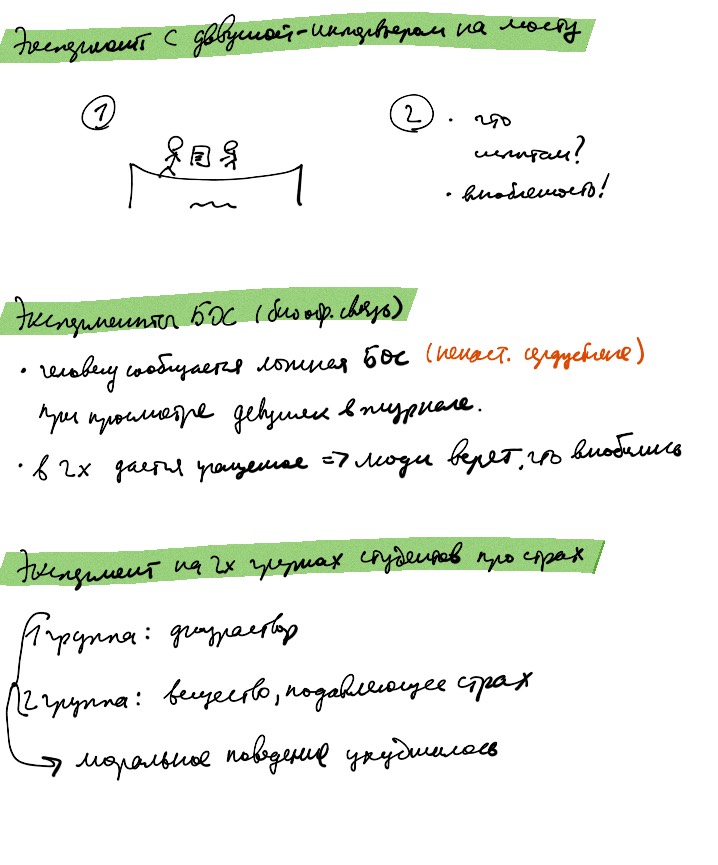 Эксперимент с девушкой-интервьюером на мосту
1
2
• что
испытали?
• влюбленность!
Эксперименты БОС (биообр. связь)
• человеку сообщается ложная БОС (ненаст. сердцебиение)
при просмотре девушек в журнале.
• в 2х дается учащенное => люди верят, что влюбились
Эксперимент на 2х группах студентов про страх
1 группа: физраствор
2 группа: вещество, подавляющее страх
→ моральное поведение ухудшилось